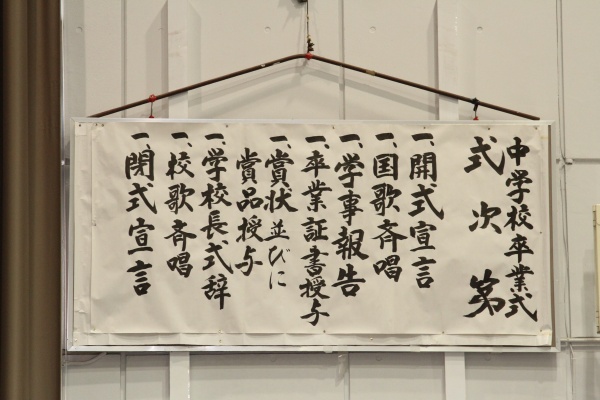 中学校卒業式
式次第
一、開式宣言
一、国歌斉唱
一、学事報告
一、卒業証書授与
一、賞状並びに
賞品授与
一、学校長式辞
一、校歌斉唱
一、閉式宣言